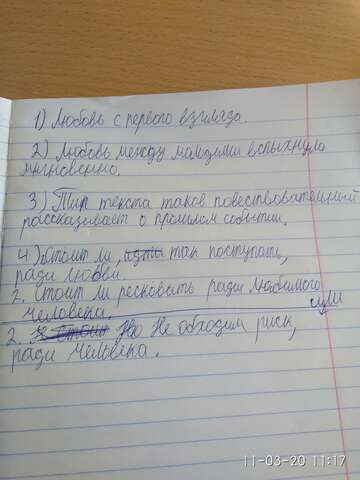 1) Любовь с первого взгляда.
2) Любовь между молодыми вспыхнула
мгновенно.
3) Тип текста таков повествовательный
рассказывает о прошлом событии.
4) Стоит ли, идти так поступать,
ради любви.
2. Стоит ли рисковать ради любимого
человека. или
2. Не обходим риск,
ради человека.
11-03-20 11:17